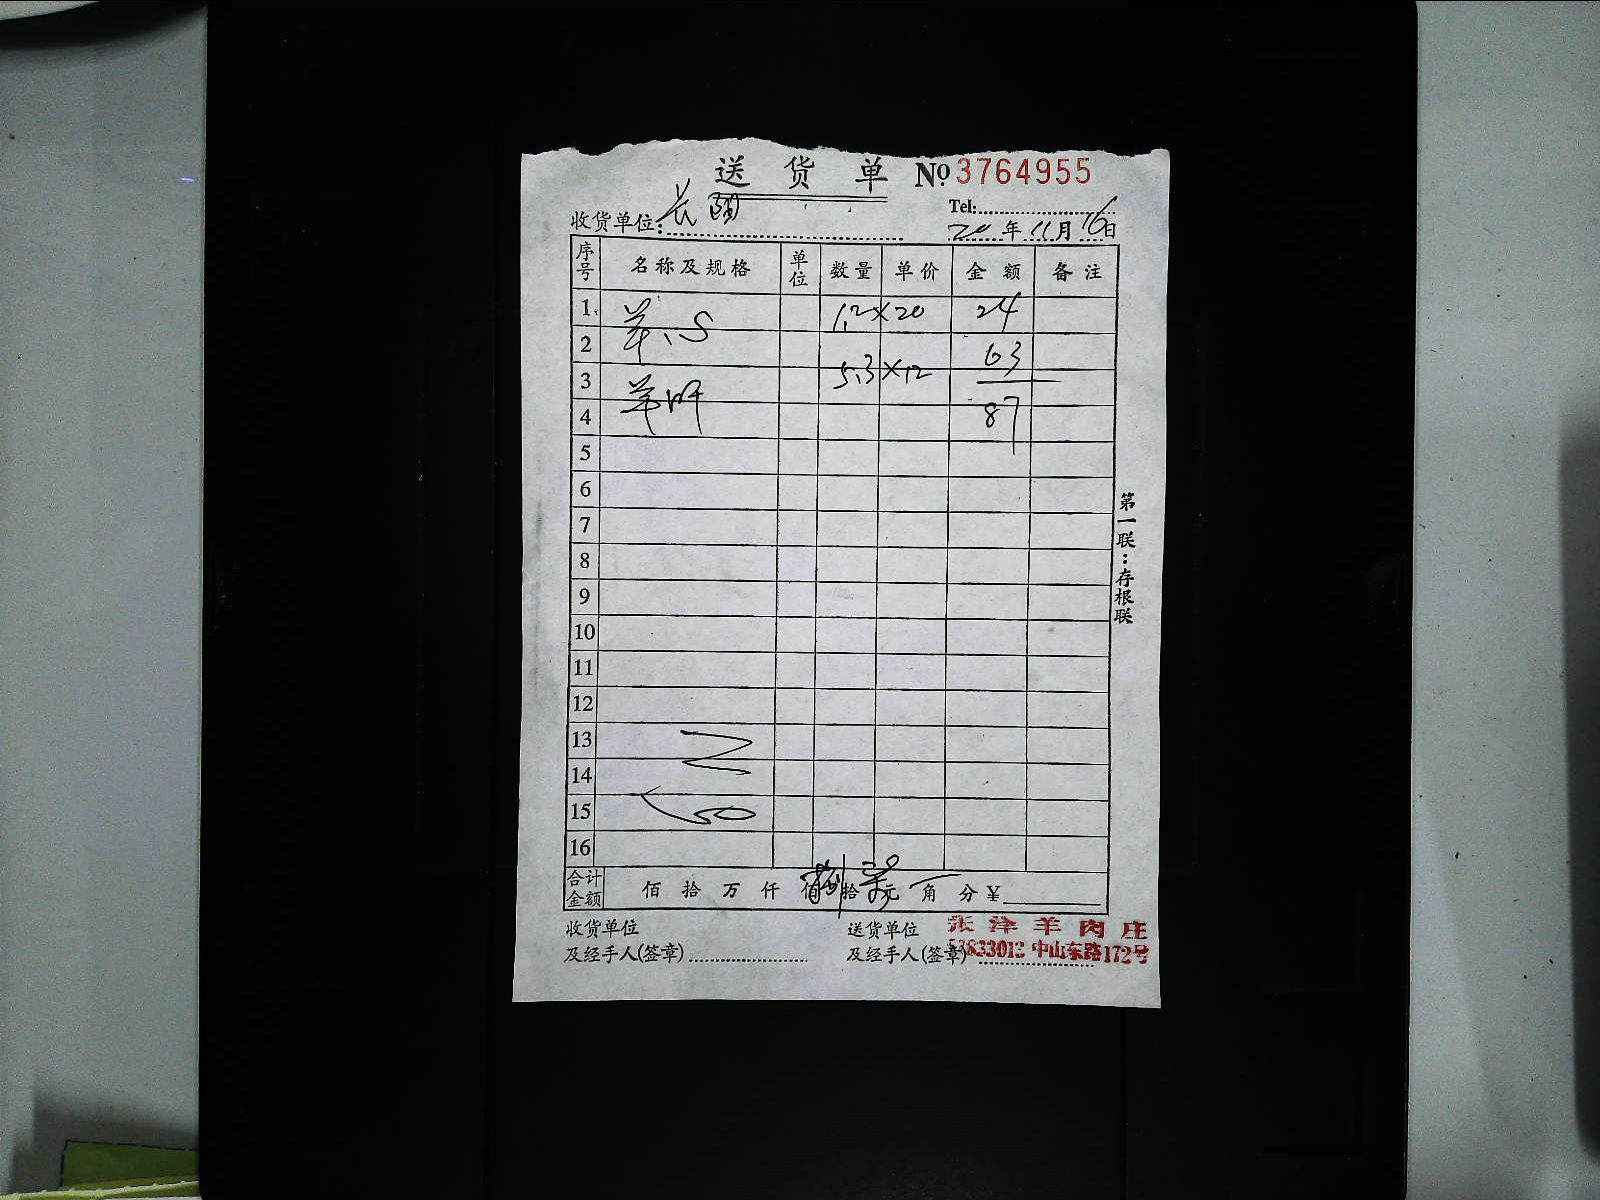 送货单 № 3764955
Tel:
收货单位: 20年11月16日
序号 名称及规格 单位 数量 单价 金额 备注
1 羊心 1.2×20 24
2 63
3 羊肝 5.3×12
4 87
5
6
7
8
9
10
11
12
13
14
15
16
合计金额 佰拾万仟佰拾元角分¥
第一联:存根联
收货单位 送货单位 张泽羊肉庄
及经手人(签章) 及经手人(签章) 中山东路172号